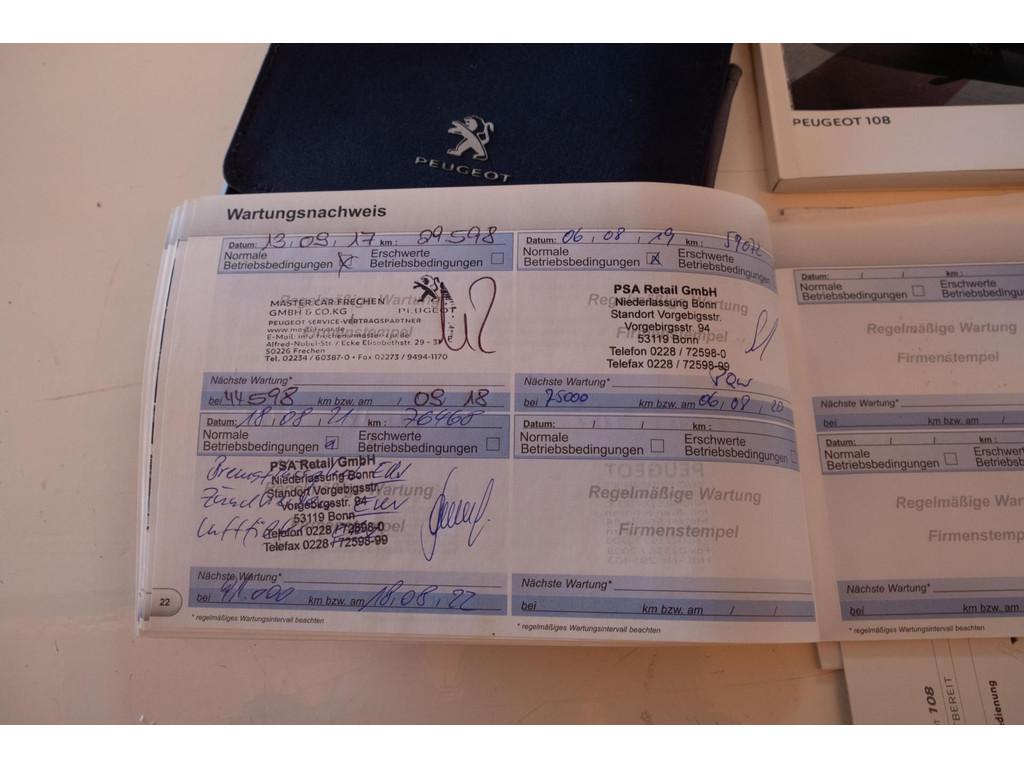 PEUGEOT
PEUGEOT 108
Wartungsnachweis
Datum: 13.09.17 km:
Normale
Betriebsbedingungen
Erschwerte
Betriebsbedingungen
MASTER CAR FRECHEN
GMBH & CO.KG
PEUGEOT
PEUGEOT SERVICE-VERTRAGSPARTNER
Alfred-Nobel-Str. / Ecke Elisabethstr. 29 -
50226 Frechen
Tel. 02234 / 60387-0 • Fax 02273 / 9494-1170
Nächste Wartung*
bei 44598 km bzw. am / 09 18
Datum: 06.08.19 km: 59072
Normale
Betriebsbedingungen
Erschwerte
Betriebsbedingungen
Regelmäßige Wartung
PSA Retail GmbH
Niederlassung Bonn
Standort Vorgebigsstr.
Vorgebirgsstr. 94
53119 Bonn
Telefon 0228 / 72598-0
Telefax 0228 / 72598-99
Nächste Wartung*
bei 75000 km bzw. am 06.08.20
Datum: 18.08.21 km: 76460
Normale
Betriebsbedingungen
Erschwerte
Betriebsbedingungen
PSA Retail GmbH
Niederlassung Bonn
Standort Vorgebigsstr.
Vorgebirgsstr. 94
53119 Bonn
Telefon 0228 / 72598-0
Telefax 0228 / 72598-99
Nächste Wartung*
bei 91.000 km bzw. am 18.08.22
* regelmäßiges Wartungsintervall beachten
22
Datum: / / km:
Normale
Betriebsbedingungen
Erschwerte
Betriebsbedingungen
Regelmäßige Wartung
Firmenstempel
Nächste Wartung*
bei km bzw. am / /
* regelmäßiges Wartungsintervall beachten
Datum: / / km:
Normale
Betriebsbedingungen
Erschwerte
Betriebsbedingungen
Regelmäßige Wartung
Firmenstempel
Nächste Wartung*
bei km bzw. am /
Datum: / / km:
Normale
Betriebsbedingungen
Erschwerte
Betriebsbed
Regelmäßige Wart
Firmenstemp
Nächste Wartung*
bei km bzw. am
* regelmäßiges Wartungsintervall beachten
108
TBEREIT
edienung